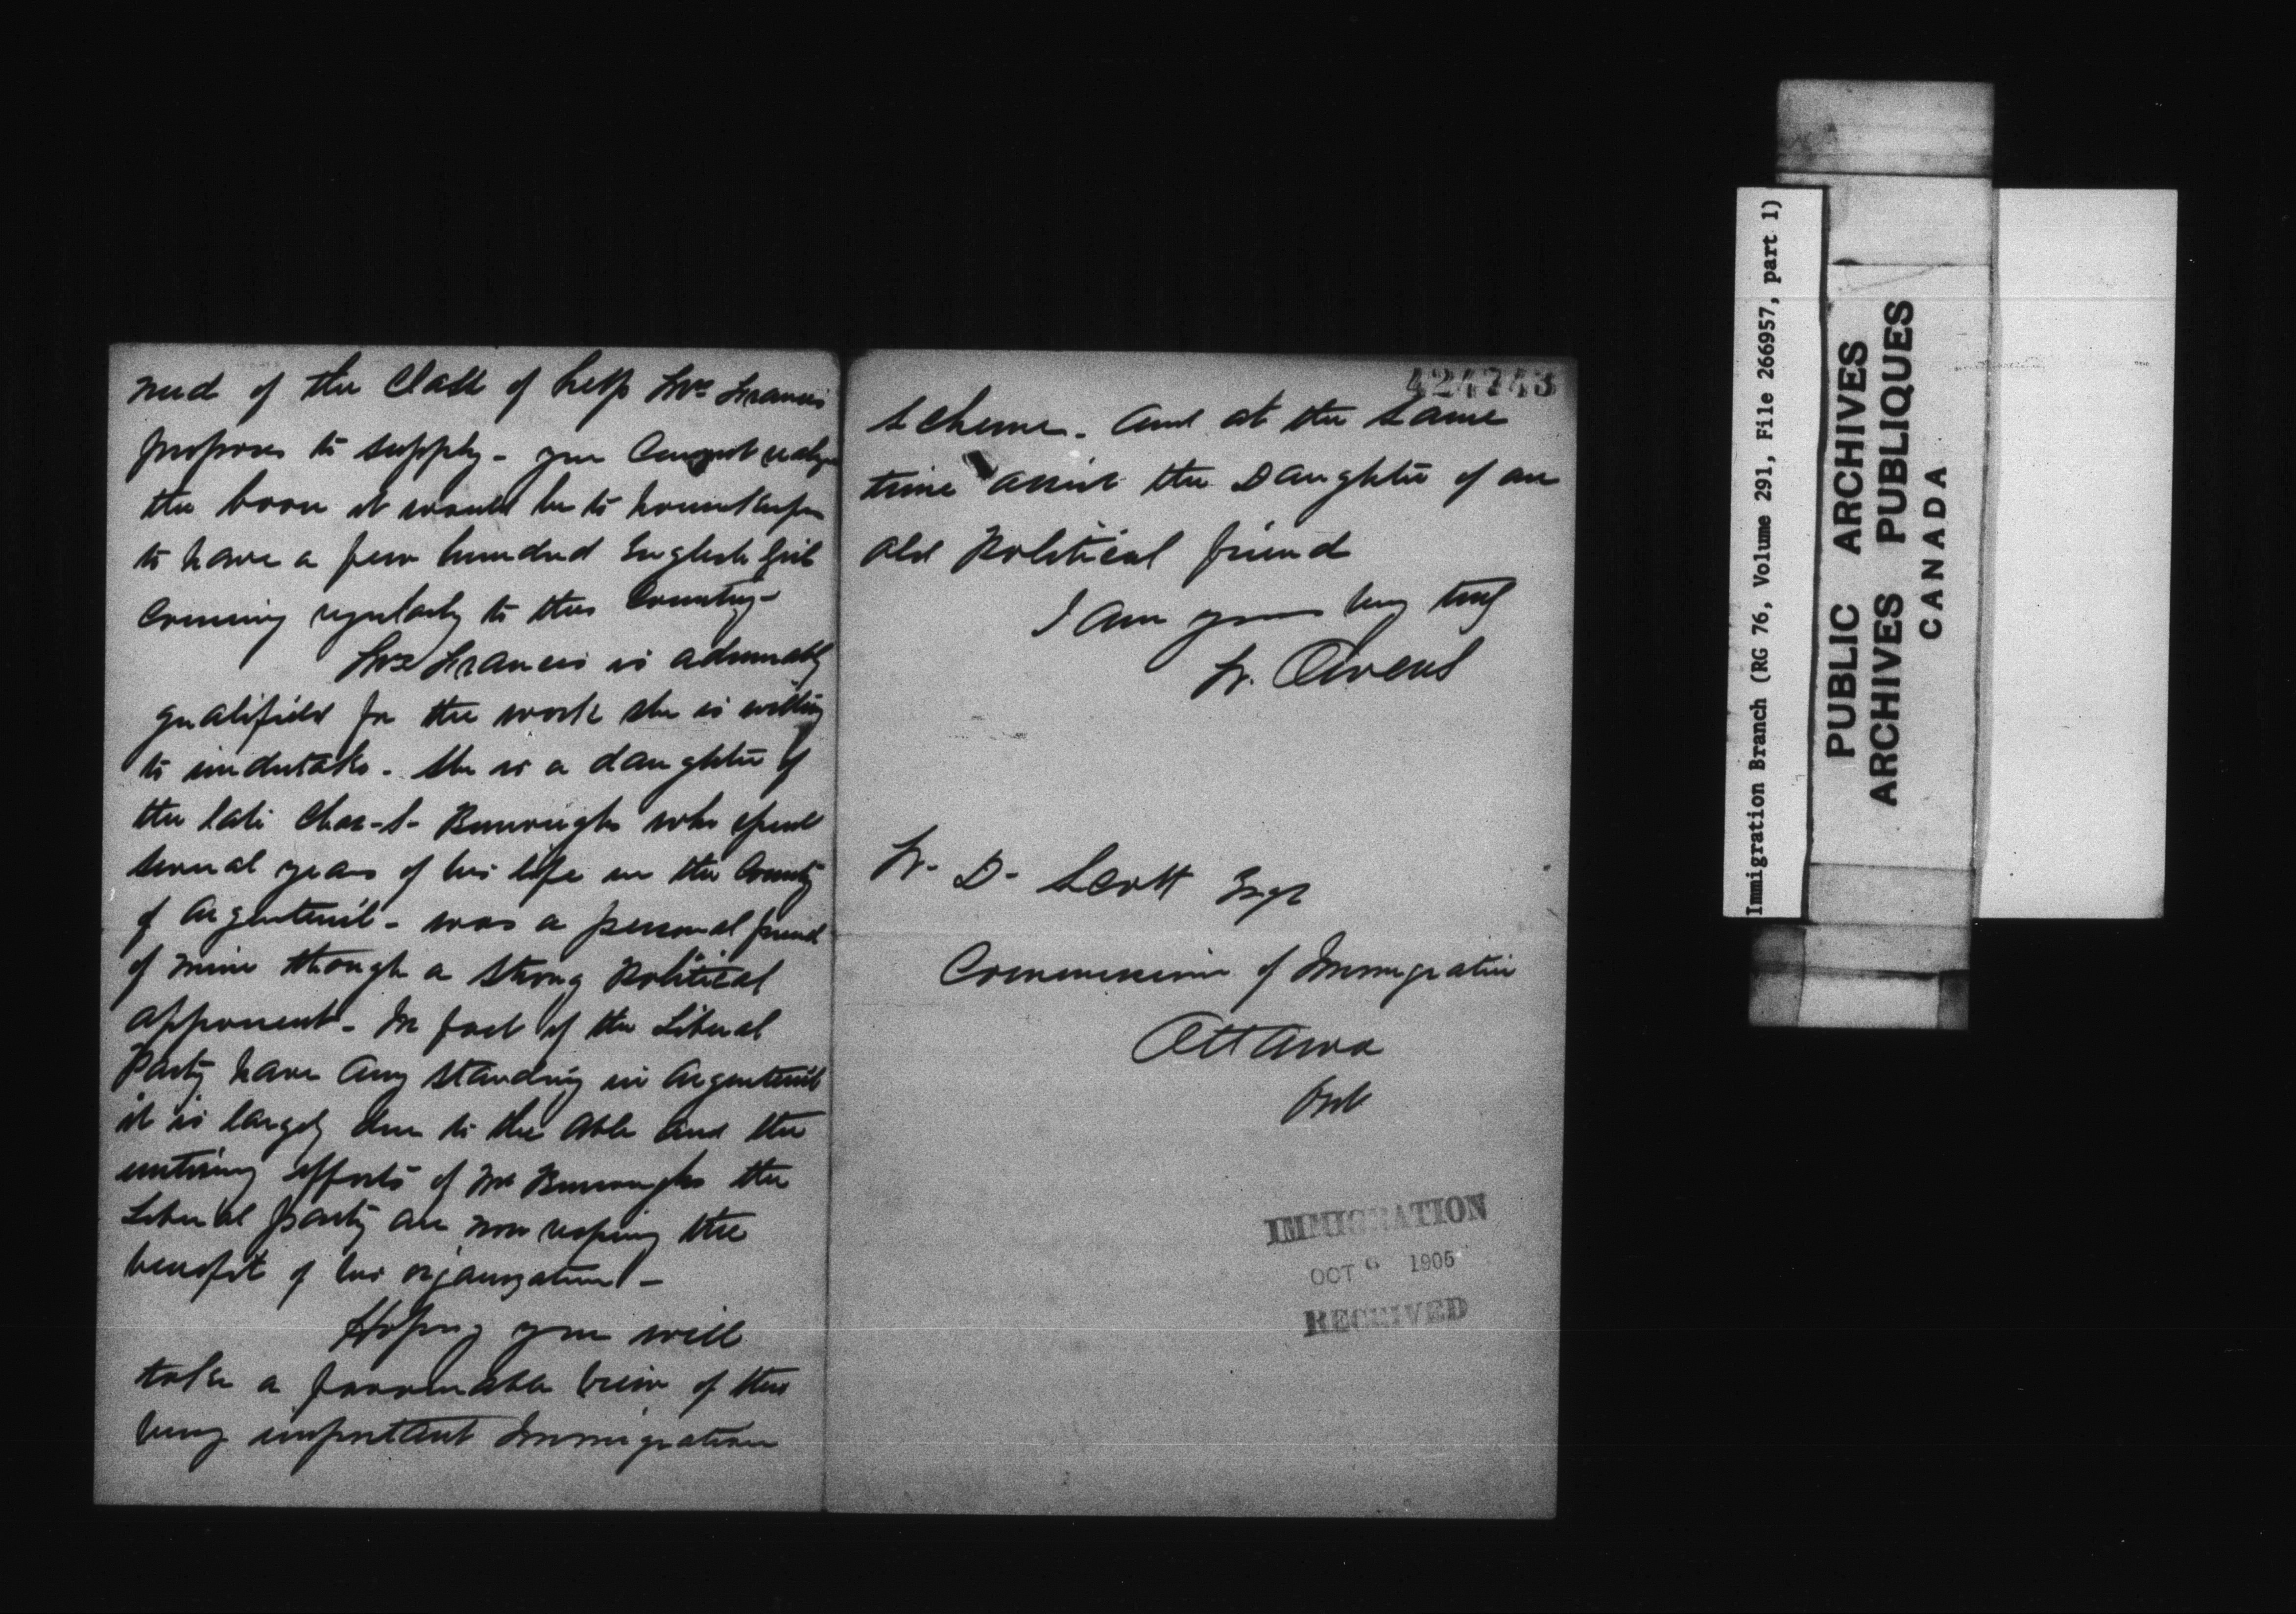 need of the Class of help Mrs Francis
proposes to supply - you Cannot realize
the boon it would be to housekeepers
to have a few hundred English Girls
Coming regularly to this Country -
Mrs Francis is admirably
qualified for the work she is willing
to undertake - She is a daughter of
the late Chas - S - Burroughs who spent
several years of his life in the County
of Argenteuil - was a personal friend
of mine though a strong Political
opponent - In fact if the Liberal
Party have any standing in Argenteuil
it is largely due to the able and the
untiring efforts of Mr Burroughs the
Liberal party are now reaping the
benefit of his organization -
Hoping you will
take a favourable view of this
very important Immigration
424743
Scheme - and at the same
time assist the Daughter of an
old Political friend
I am yours very truly
W. Owens
W. D. Scott Esqr
Commissioner of Immigration
Ottawa
Ont
IMMIGRATION
OCT 6 1905
RECEIVED
Immigration Branch (RG 76, Volume 291, File 266957, part 1)
PUBLIC ARCHIVES
ARCHIVES PUBLIQUES
CANADA